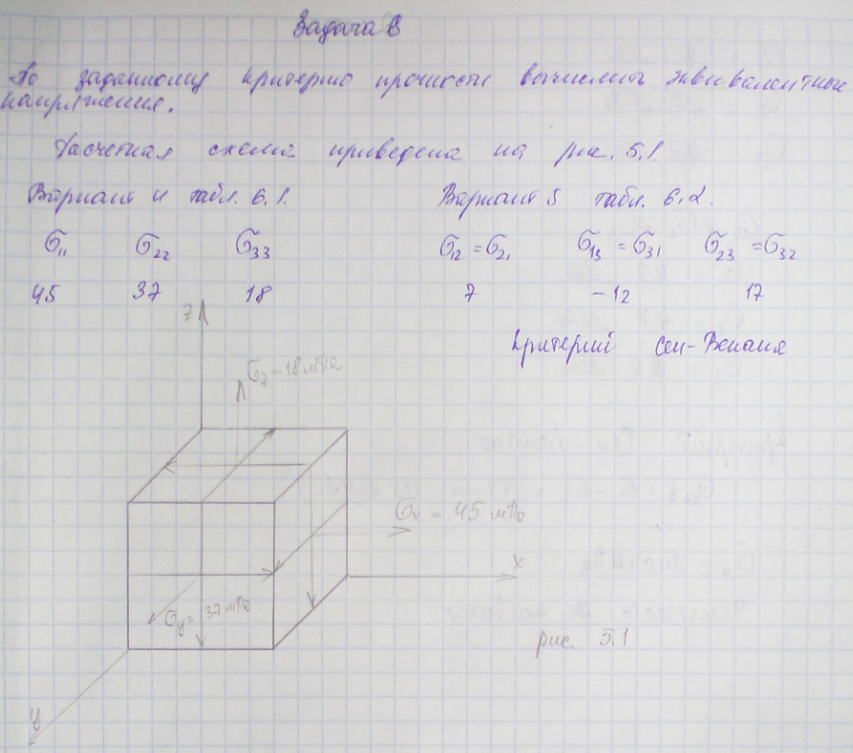 Задача 6
По заданному критерию прочности вычислить эквивалентные
напряжения.
Расчетная схема приведена на рис. 5.1
Вариант 4 табл. 6.1. Вариант 5 табл. 6.2.
σ₁₁ σ₂₂ σ₃₃ σ₁₂ = σ₂₁ σ₁₃ = σ₃₁ σ₂₃ = σ₃₂
45 37 18 7 -12 17
Критерий Сен-Венана
z
σz = 18 мПа
σx = 45 мПа
x
σy = 37 мПа
рис. 5.1
y